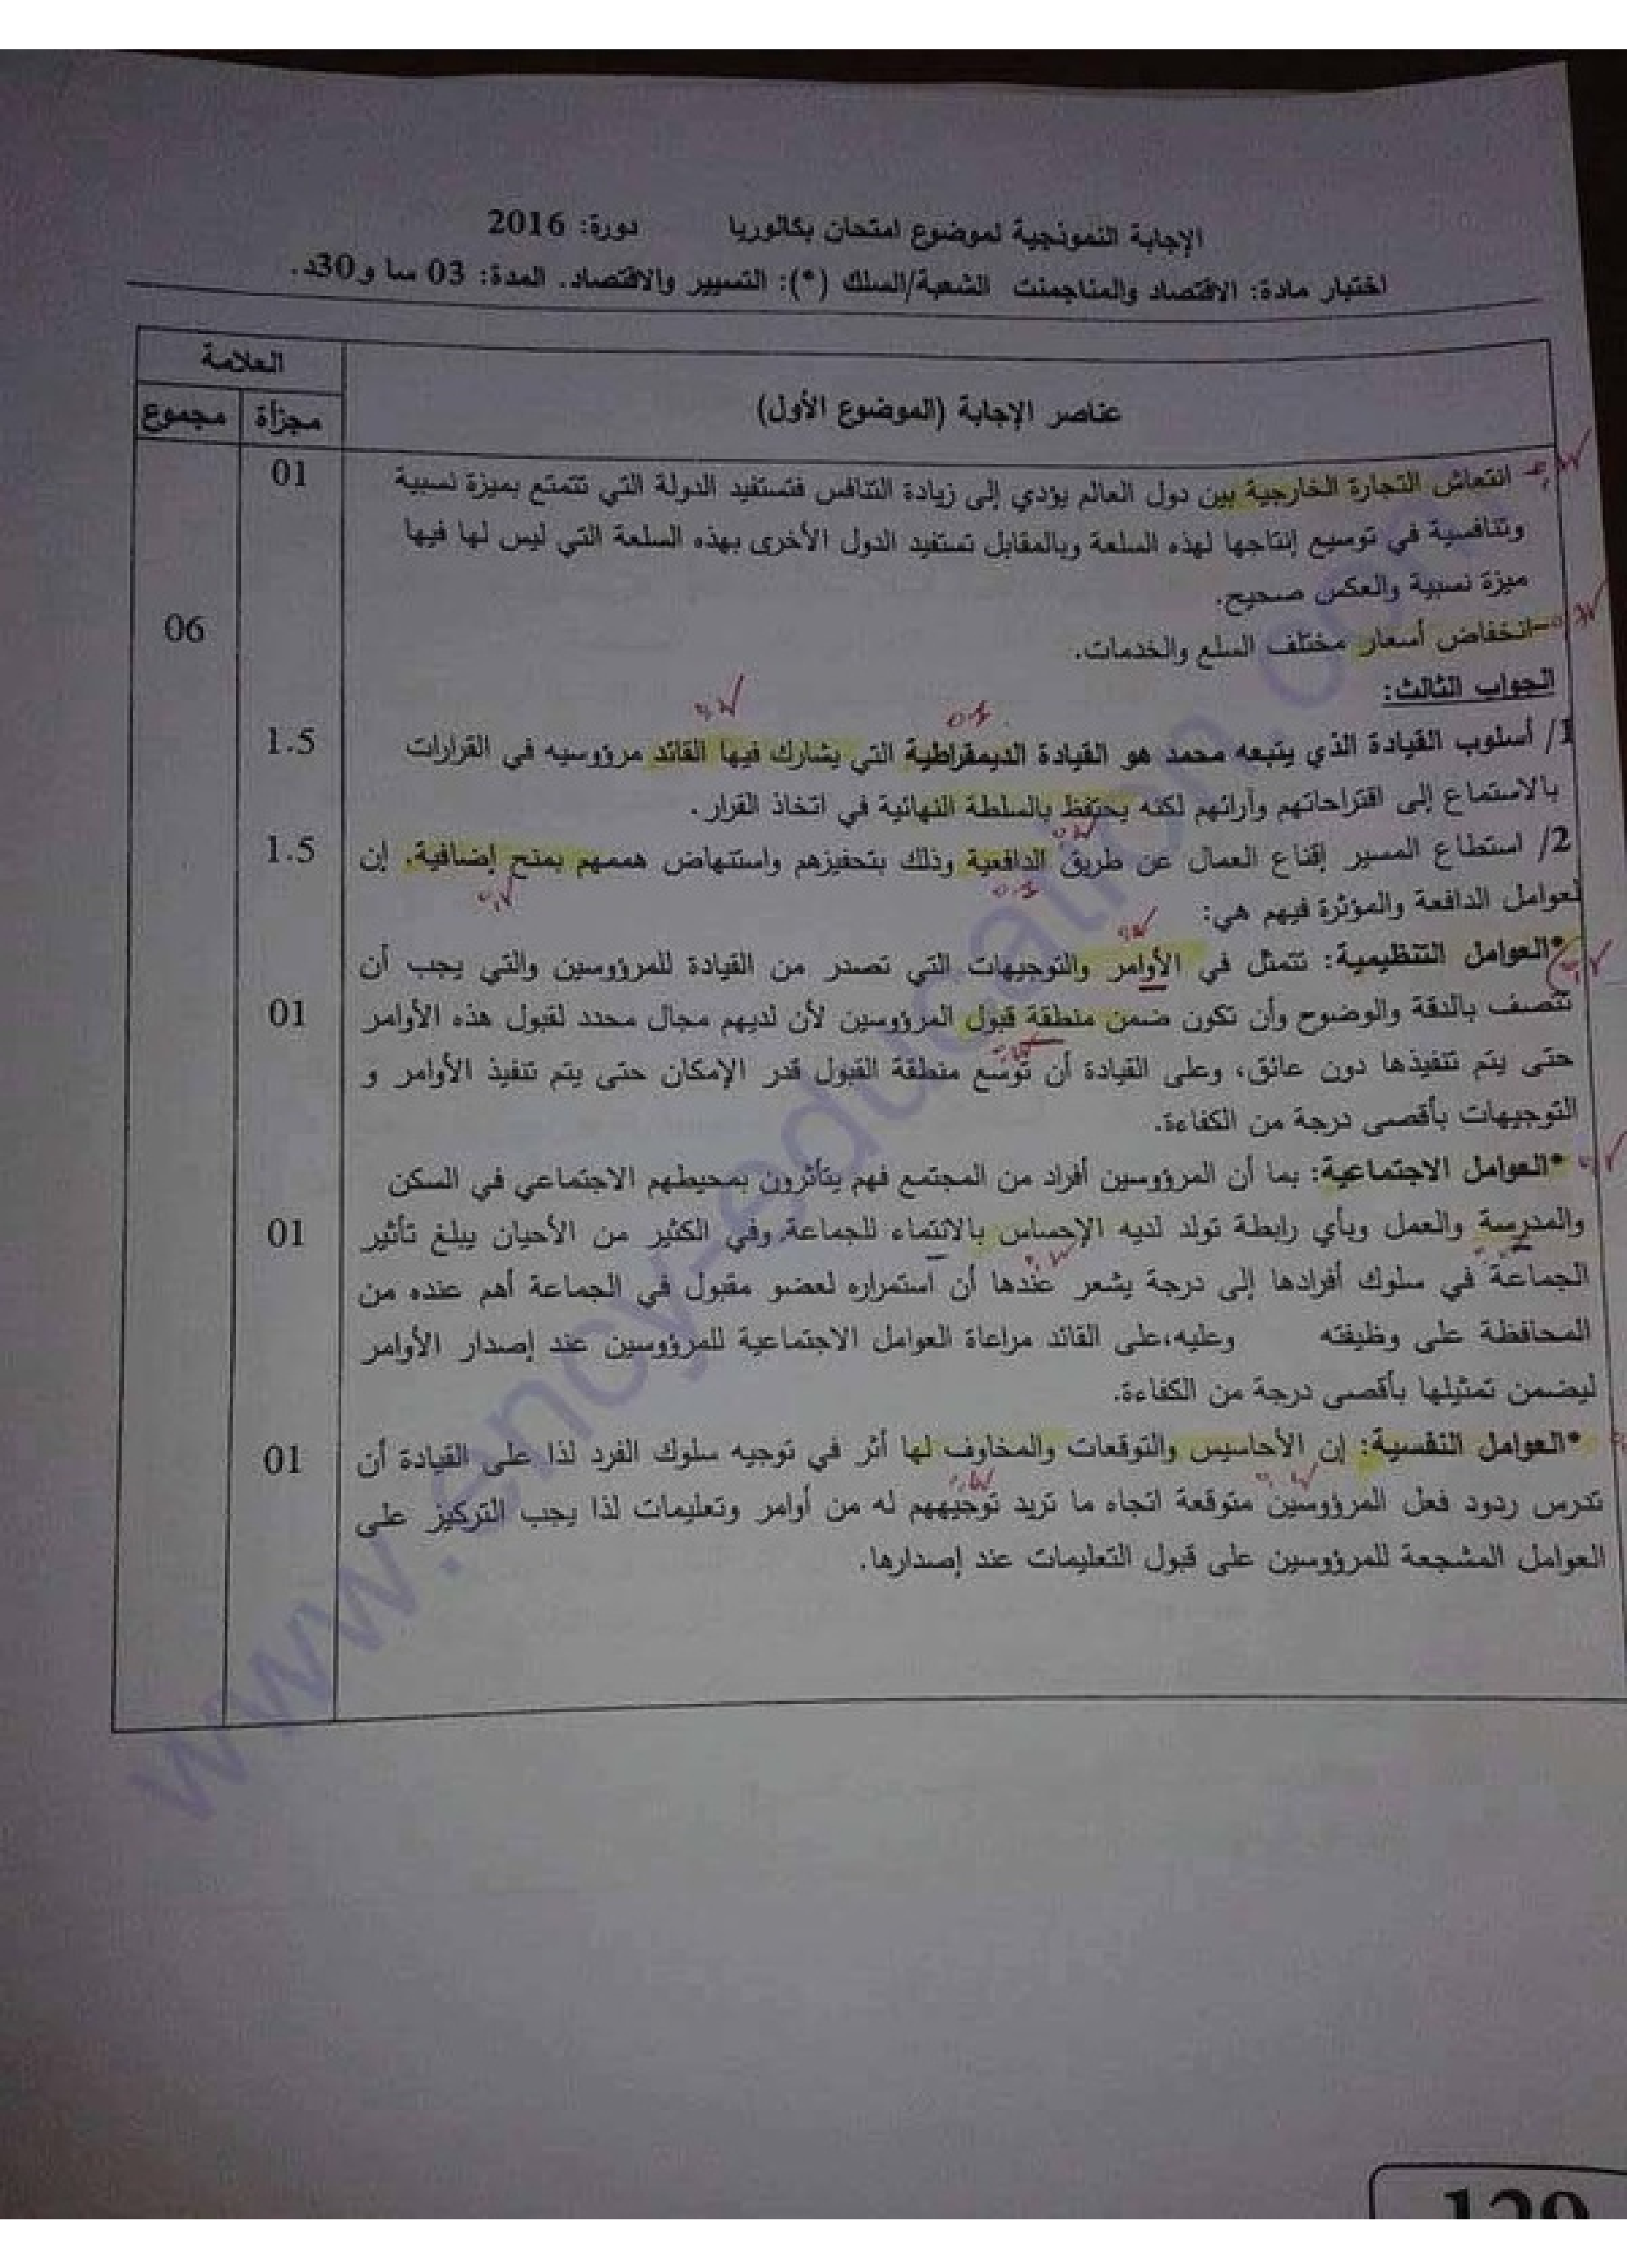 الإجابة النموذجية لموضوع امتحان بكالوريا دورة: 2016
اختبار مادة: الاقتصاد والمناجمنت الشعبة/السلك (*): التسيير والاقتصاد. المدة: 03 سا و30د.
عناصر الإجابة (الموضوع الأول) العلامة
مجزأة مجموع
انتعاش التجارة الخارجية بين دول العالم يؤدي إلى زيادة التنافس فتستفيد الدولة التي تتمتع بميزة نسبية 01
وتنافسية في توسيع إنتاجها لهذه السلعة وبالمقابل تستفيد الدول الأخرى بهذه السلعة التي ليس لها فيها
ميزة نسبية والعكس صحيح.
-انخفاض أسعار مختلف السلع والخدمات. 06
الجواب الثالث:
1/ أسلوب القيادة الذي يتبعه محمد هو القيادة الديمقراطية التي يشارك فيها القائد مرؤوسيه في القرارات 1.5
بالاستماع إلى اقتراحاتهم وآرائهم لكنه يحتفظ بالسلطة النهائية في اتخاذ القرار.
2/ استطاع المسير إقناع العمال عن طريق الدافعية وذلك بتحفيزهم واستنهاض هممهم بمنح إضافية. إن 1.5
لعوامل الدافعة والمؤثرة فيهم هي:
*العوامل التنظيمية: تتمثل في الأوامر والتوجيهات التي تصدر من القيادة للمرؤوسين والتي يجب أن
تتصف بالدقة والوضوح وأن تكون ضمن منطقة قبول المرؤوسين لأن لديهم مجال محدد لقبول هذه الأوامر 01
حتى يتم تنفيذها دون عائق، وعلى القيادة أن توسع منطقة القبول قدر الإمكان حتى يتم تنفيذ الأوامر و
التوجيهات بأقصى درجة من الكفاءة.
*العوامل الاجتماعية: بما أن المرؤوسين أفراد من المجتمع فهم يتأثرون بمحيطهم الاجتماعي في السكن
والمدرسة والعمل وبأي رابطة تولد لديه الإحساس بالانتماء للجماعة. وفي الكثير من الأحيان يبلغ تأثير 01
الجماعة في سلوك أفرادها إلى درجة يشعر عندها أن استمراره لعضو مقبول في الجماعة أهم عنده من
المحافظة على وظيفته وعليه،على القائد مراعاة العوامل الاجتماعية للمرؤوسين عند إصدار الأوامر
ليضمن تمثيلها بأقصى درجة من الكفاءة.
*العوامل النفسية: إن الأحاسيس والتوقعات والمخاوف لها أثر في توجيه سلوك الفرد لذا على القيادة أن 01
تدرس ردود فعل المرؤوسين متوقعة اتجاه ما تريد توجيههم له من أوامر وتعليمات لذا يجب التركيز على
العوامل المشجعة للمرؤوسين على قبول التعليمات عند إصدارها.
129